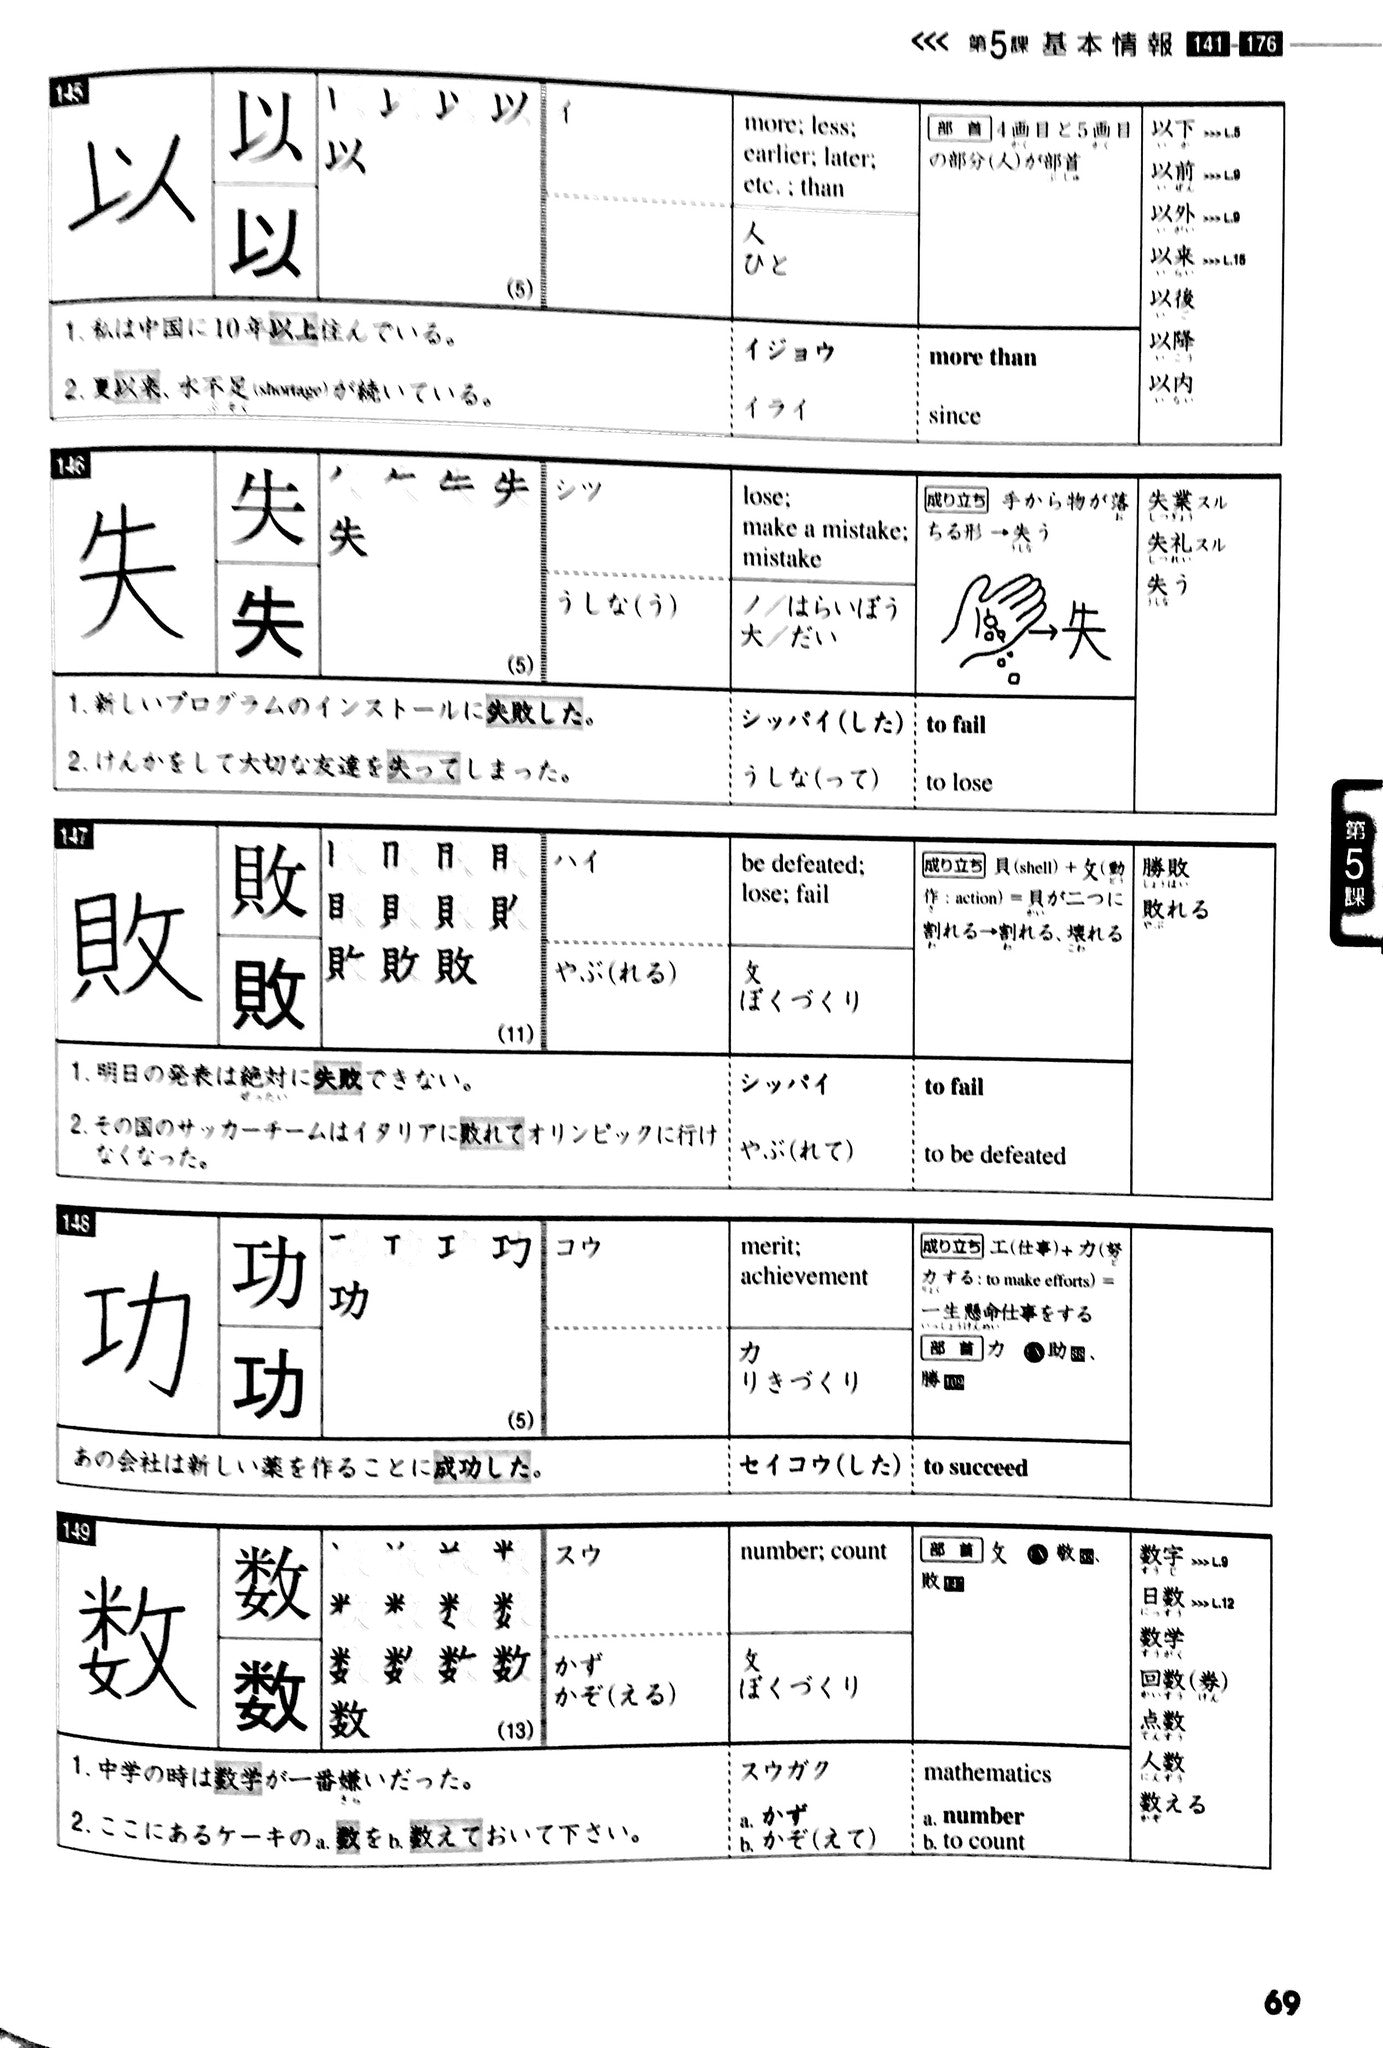 第5課 基本情報 141-176
145
以
以
以
以
(5)
イ
more; less;
earlier; later;
etc. ; than
人
ひと
部首 4画目と5画目
の部分(人)が部首
以下 >>>L.8
いか
以前 >>>L.9
いぜん
以外 >>>L.9
いがい
以来 >>>L.15
いらい
以後
いご
以降
いこう
以内
いない
1. 私は中国に10年以上住んでいる。
イジョウ
more than
2. 夏以来、水不足(shortage)が続いている。
ぶそく
イライ
since
146
失
失
失
失
(5)
シツ
うしな(う)
lose;
make a mistake;
mistake
ノ／はらいぼう
大／だい
成り立ち 手から物が落
ちる形→失う
失
失業スル
しつぎょう
失礼スル
しつれい
失う
うしな
1. 新しいプログラムのインストールに失敗した。
シッパイ(した)
to fail
2. けんかをして大切な友達を失ってしまった。
うしな(って)
to lose
147
敗
敗
敗
敗
(11)
ハイ
やぶ(れる)
be defeated;
lose; fail
攵
ぼくづくり
成り立ち 貝(shell) + 攵(動
作 : action) = 貝が二つに
割れる→割れる、壊れる
勝敗
しょうはい
敗れる
やぶ
1. 明日の発表は絶対に失敗できない。
ぜったい
シッパイ
to fail
2. その国のサッカーチームはイタリアに敗れてオリンピックに行け
なくなった。
やぶ(れて)
to be defeated
148
功
功
功
功
(5)
コウ
merit;
achievement
力
りきづくり
成り立ち 工(仕事)+ 力(努
力する: to make efforts) =
一生懸命仕事をする
いっしょうけんめい
部首 力 助、
勝
あの会社は新しい薬を作ることに成功した。
セイコウ(した)
to succeed
149
数
数
数
数
(13)
スウ
かず
かぞ(える)
number; count
攵
ぼくづくり
部首 攵
敗
数字 >>>L.9
すうじ
日数 >>>L.12
にっすう
数学
すうがく
回数(券)
かいすう けん
点数
てんすう
人数
にんずう
数える
かぞ
1. 中学の時は数学が一番嫌いだった。
きら
スウガク
mathematics
2. ここにあるケーキのa. 数をb. 数えておいて下さい。
a. かず
b. かぞ(えて)
a. number
b. to count
第5課
69